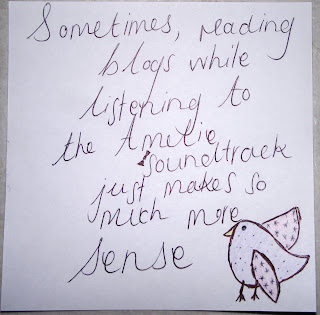 Sometimes, reading
blogs while
listening to
the Amelie
soundtrack
just makes so
much more
sense